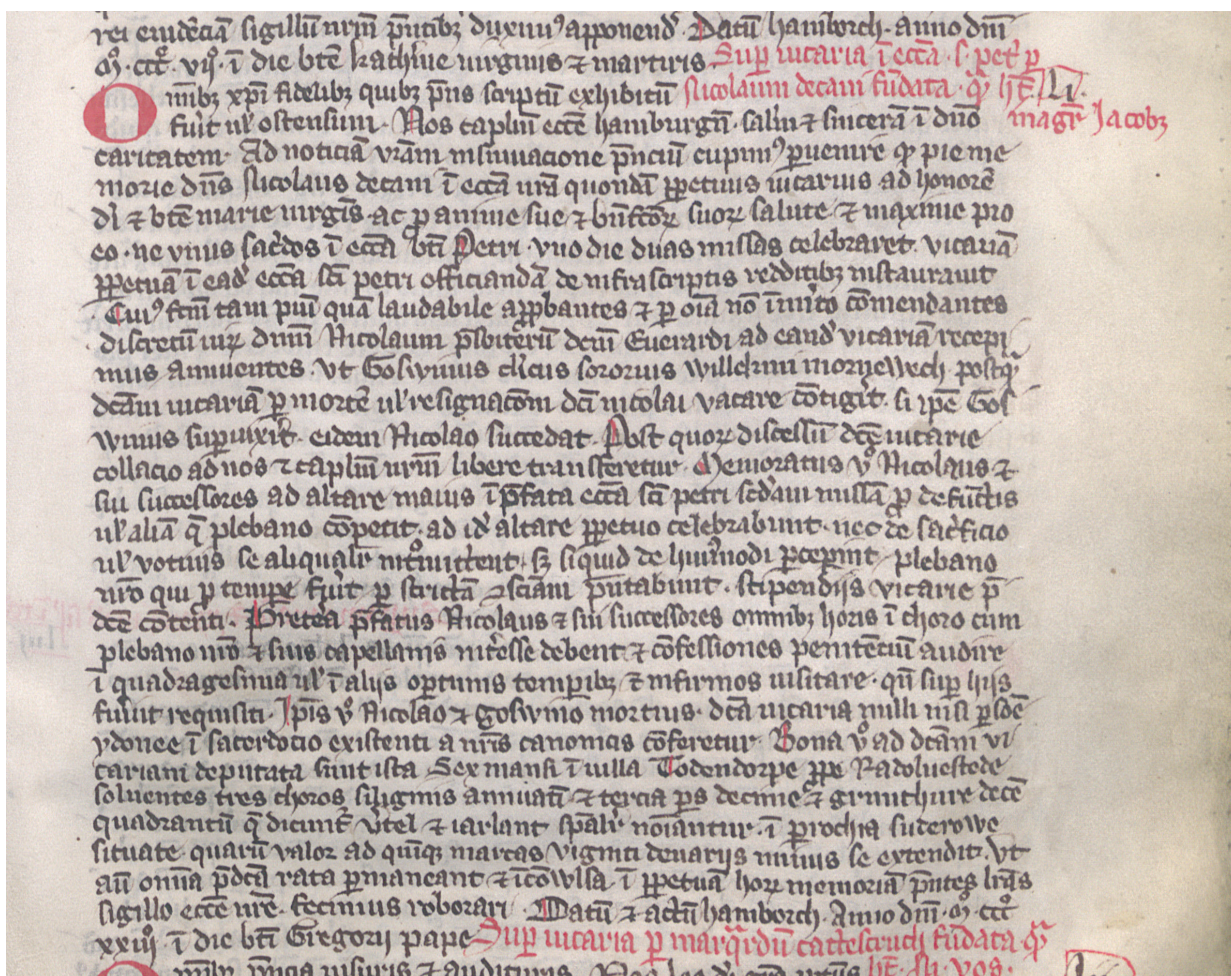 rei euidēciā sigillū nr̄m p̄ntibꝫ duximꝰ apponend̄. Datū hamborch. anno dn̄i
mͦ. cccͦ. vijͦ. ī die btē katherine uirginis ⁊ martiris Suꝑ uicaria ī ecc̄a. s. pet͛ ꝑ
Omībꝫ xp̄i fidelibꝫ quibꝫ p̄ns scriptū exhibitū Nicolaum decani fūdata. qͣ hꝫ
fuīt ul̓ ostensum. Nos capl̄m ecc̄e hamburgen̄. salūt ⁊ sincerā ī dn̄o magr̄ Jacobꝫ
caritatem. Ad noticiā vr̄am insinuacione p̄nciū cupimꝰ ꝑuenire qͩ pie me
morie dn̄s Nicolaus decani ī ecc̄a nr̄a quondā ꝑpetuus uicarius ad honorē
dī ⁊ btē marie uirgīs ac ꝓ anime sue ⁊ bn̄fcōꝝ suoꝝ salute ⁊ maxime pro
eo. ne vnus sac͛dos ī ecc̄a bt̄i Petri. vno die duas missas celebraret. vicariā
ꝑpetuā ī ead̄ ecc̄a sc̄i petri officiandā de infrascriptis redditibꝫ instaurauit
Cuiꝰ fc̄m tam piū quā laudabile apꝓbantes ⁊ ꝑ oīa nō īm̄ito cōmendantes
discretū uiꝝ dn̄m Nicolaum p̄sbiterū dc̄m Euerardi ad eand̄ vicariā recepi
mus annuentes. vt Goswinus cl̓icus sororius willelmi mornewech. postqͣ
dc̄am uicariā ꝑ mortē ul̓ resignacōm dc̄i nicolai vacare cōtigͥt. si ip̄e Gos
winus suꝑuixīt. eidem Nicolao succedat. Post quoꝝ discessū dc̄e uicarie
collacio ad nos ⁊ capl̄m nr̄m libere transferetur. Memoratus vͦ Nicolaus ⁊
sui successores ad altare maius ī p̄fata ecc̄a sc̄i petri sc̄dam missā ꝓ defūctis
ul̓ aliā q̄ plebano cōpetit. ad id̄ altare ꝑpetuo celebrabunt. nec de sac͛ficio
ul̓ votiuis se aliqualr̄ int͛mittent. sꝫ siquid de huiꝰmodi ꝑcepint. plebano
nr̄o qui ꝓ tempe fuīt ꝑ strictā ꝯsciam p̄ntabunt. stipendijs vicarie p̄
dc̄e cōtenti. Pretea p̄fatus Nicolaus ⁊ sui successores omnibꝫ horis ī choro cum
plebano nr̄o ⁊ suis capellanis int͛esse debent ⁊ cōfessiones penitēciū audire
ī quadragesima ul̓ ī alijs oꝑtunis tempibꝫ ⁊ infirmos uisitare. qn̄ suꝑ hijs
fuīut requisiti. Ip̄is vͦ Nicolao ⁊ goswino mortuis. dc̄a uicaria nulli nisi ꝑsōe
ydonee ī sacerdocio existenti a nr̄is canonicis cōferetur. Bona vͦ ad dc̄am vi
cariam deputata sunt ista Sex mansi ī uilla Todendorpe ꝓpe Radoluestede
soluentes tres choros siliginis annuatī ⁊ tercia ꝑs decime ⁊ grunthure decē
quadrantū q̄ dicunt͛ v͛tel ⁊ iarlant spāl̓r noīantur. ī ꝑrochia suderowe
situate. quarū valor ad quīqꝫ marcas viginti denarijs minus se extendit. vt
aū om̄ia p̄dc̄a rata ꝑmaneant ⁊ īcōwlsa. ī ꝑpetuā hoꝝ memoriā p̄ntes lr̄as
sigillo ecc̄e nr̄e. fecimus roborari. Datū ⁊ actū hamborch. Anno dn̄i. mͦ. cccͦ
xxiiijͦ. ī die bt̄i Gregorij pape Suꝑ uicaria ꝑ marqͣrdū cattescruch fūdata qͣ